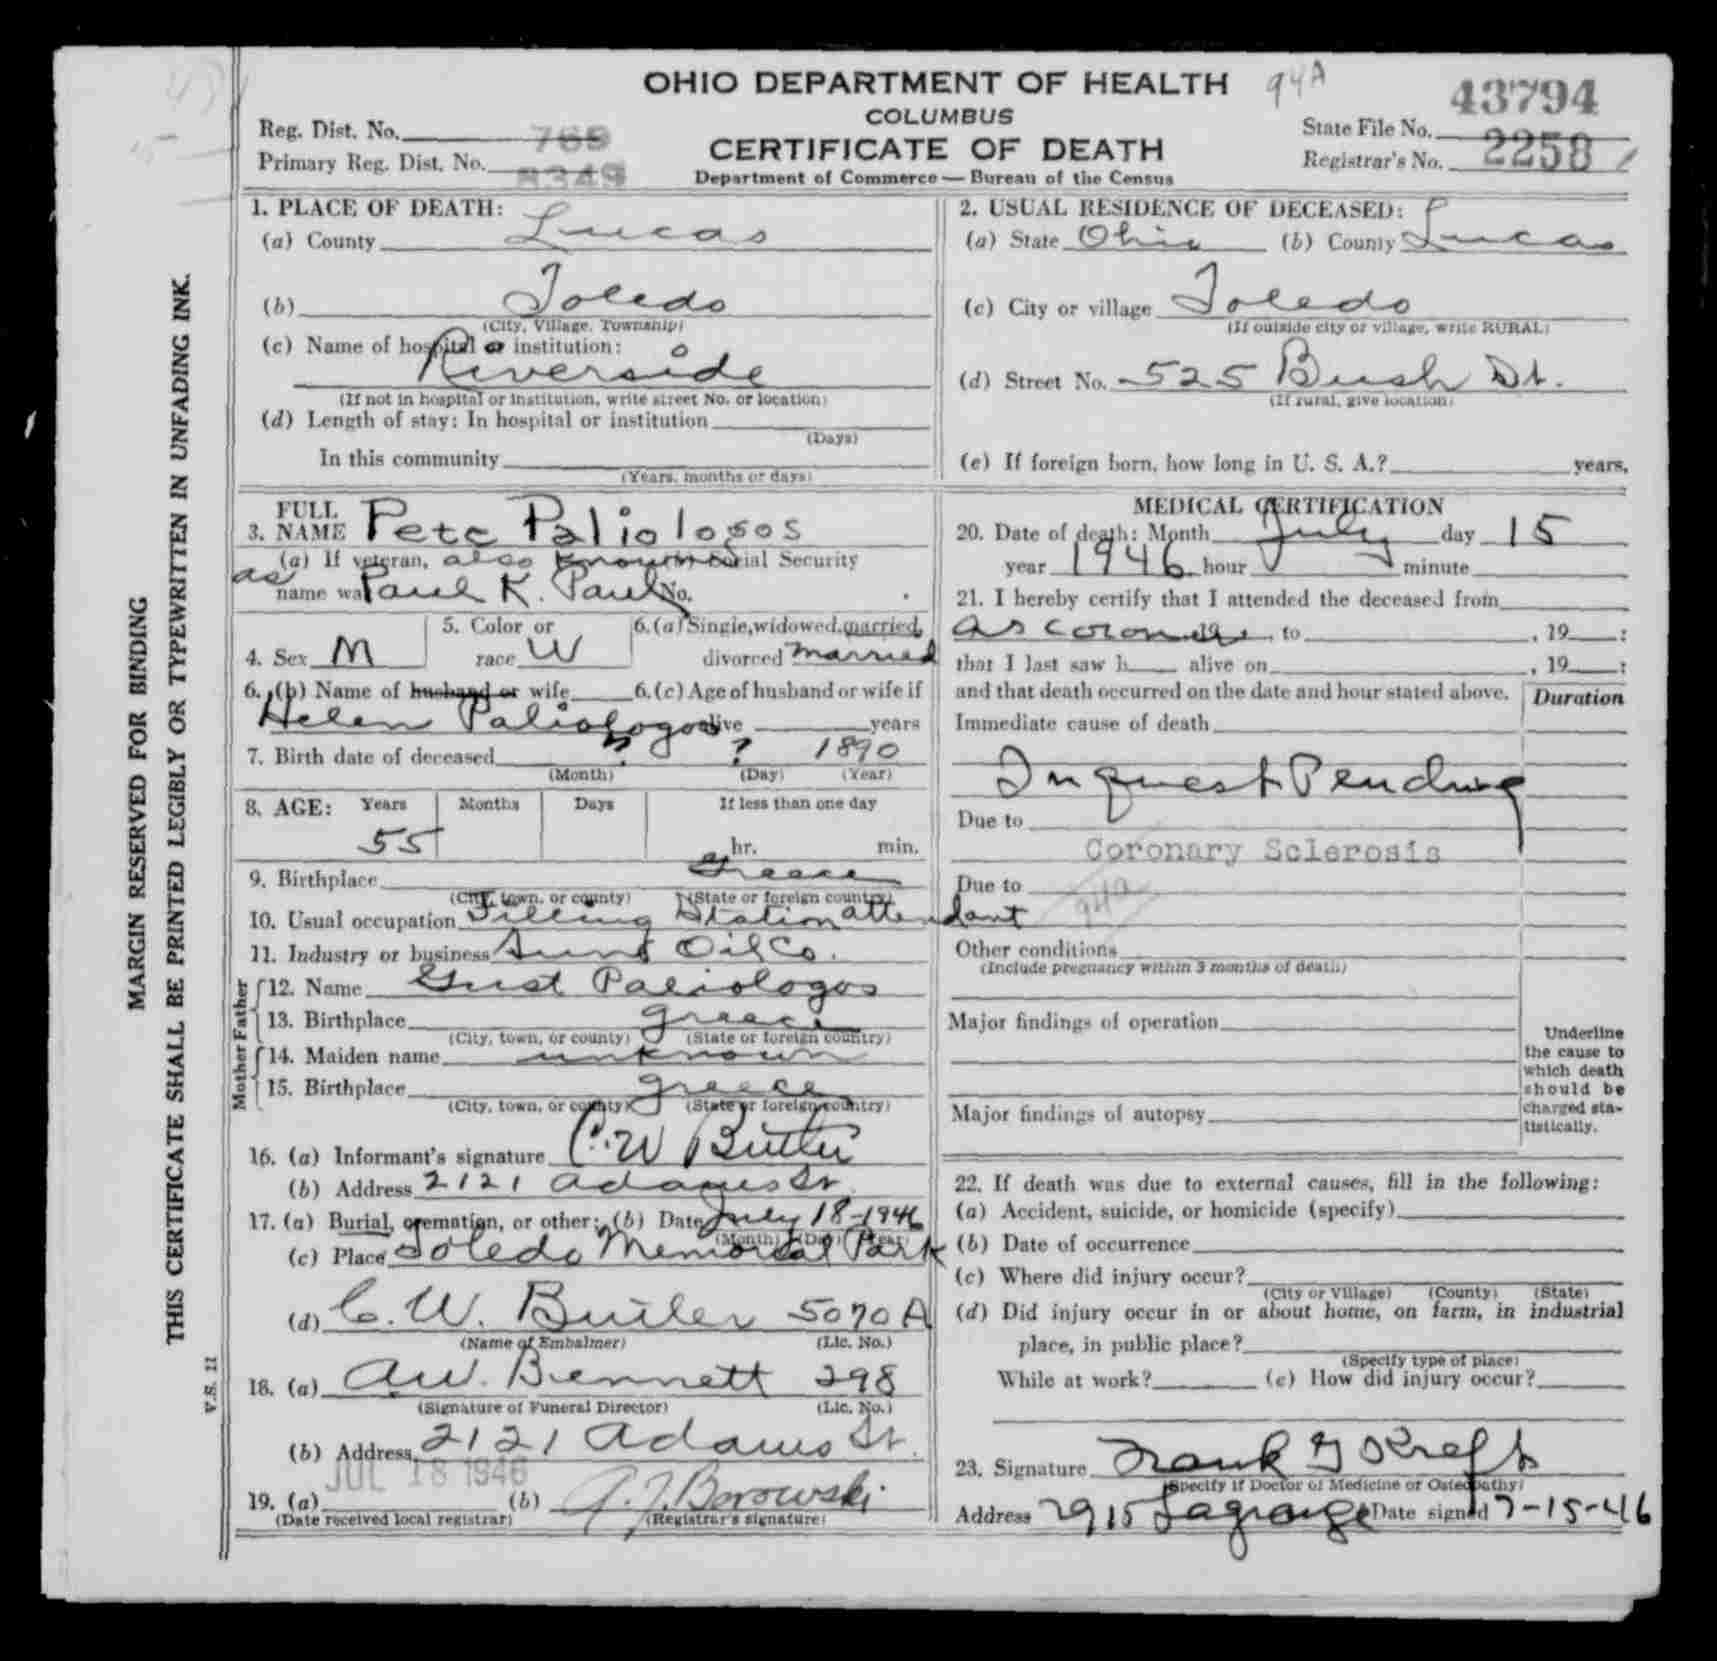 OHIO DEPARTMENT OF HEALTH
94A
43794
COLUMBUS
Reg. Dist. No. 769
State File No.
CERTIFICATE OF DEATH
Primary Reg. Dist. No. 8349
Registrar's No. 2258
Department of Commerce — Bureau of the Census
1. PLACE OF DEATH:
(a) County Lucas
(b) Toledo
(City, Village, Township)
(c) Name of hospital or institution:
Riverside
(If not in hospital or institution, write street No. or location)
(d) Length of stay: In hospital or institution
(Days)
In this community
(Years, months or days)
2. USUAL RESIDENCE OF DECEASED:
(a) State Ohio (b) County Lucas
(c) City or village Toledo
(If outside city or village, write RURAL)
(d) Street No. 525 Bush St.
(If rural, give location)
(e) If foreign born, how long in U. S. A.? years.
3. FULL NAME Pete Paliologos
(a) If veteran, also known Social Security
as
name wa Paul K. Paul No.
4. Sex M
5. Color or race W
6. (a) Single, widowed, married, divorced Married
6. (b) Name of husband or wife 6. (c) Age of husband or wife if
Helen Paliologos alive years
7. Birth date of deceased ? ? 1890
(Month) (Day) (Year)
8. AGE: Years Months Days If less than one day
55 hr. min.
9. Birthplace Greece
(City, town, or county) (State or foreign country)
10. Usual occupation Filling Station attendant
11. Industry or business Oil Co.
Father
12. Name Gust Paliologos
13. Birthplace Greece
(City, town, or county) (State or foreign country)
Mother
14. Maiden name unknown
15. Birthplace Greece
(City, town, or county) (State or foreign country)
16. (a) Informant's signature C. W Butler
(b) Address 2121 Adams St.
17. (a) Burial, cremation, or other: (b) Date July 18-1946
(Month) (Day) (Year)
(c) Place Toledo Memorial Park
(d) C. W. Butler 5070 A
(Name of Embalmer) (Lic. No.)
18. (a) A.W. Bennett 298
(Signature of Funeral Director) (Lic. No.)
(b) Address 2121 Adams St.
JUL 18 1946
19. (a) (b) A. J. Borowski
(Date received local registrar) (Registrar's signature)
MEDICAL CERTIFICATION
20. Date of death: Month July day 15
year 1946 hour minute
21. I hereby certify that I attended the deceased from
as coroner 19 , to , 19 :
that I last saw h alive on , 19 :
and that death occurred on the date and hour stated above.
Duration
Immediate cause of death
Inquest Pending
Due to
Coronary Sclerosis
Due to
94a
Other conditions
(Include pregnancy within 3 months of death)
Major findings of operation
Major findings of autopsy
Underline
the cause to
which death
should be
charged sta-
tistically.
22. If death was due to external causes, fill in the following:
(a) Accident, suicide, or homicide (specify)
(b) Date of occurrence
(c) Where did injury occur?
(City or Village) (County) (State)
(d) Did injury occur in or about home, on farm, in industrial
place, in public place?
(Specify type of place)
While at work? (e) How did injury occur?
23. Signature Frank G Kreft
(Specify if Doctor of Medicine or Osteopathy)
Address 2915 Lagrange Date signed 7-15-46
MARGIN RESERVED FOR BINDING
THIS CERTIFICATE SHALL BE PRINTED LEGIBLY OR TYPEWRITTEN IN UNFADING INK.
V.S. 11